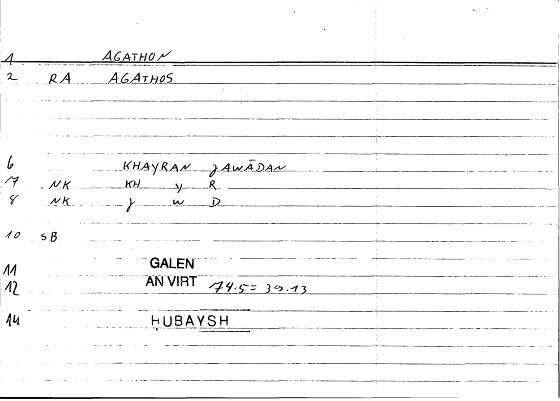 1 AGATHON
2 RA AGATHOS
6 KHAYRAN JAWĀDAN
7 NK KH Y R
8 NK J W D
10 SB
11 GALEN
12 AN VIRT 74.5 = 30.13
14 ḤUBAYSH